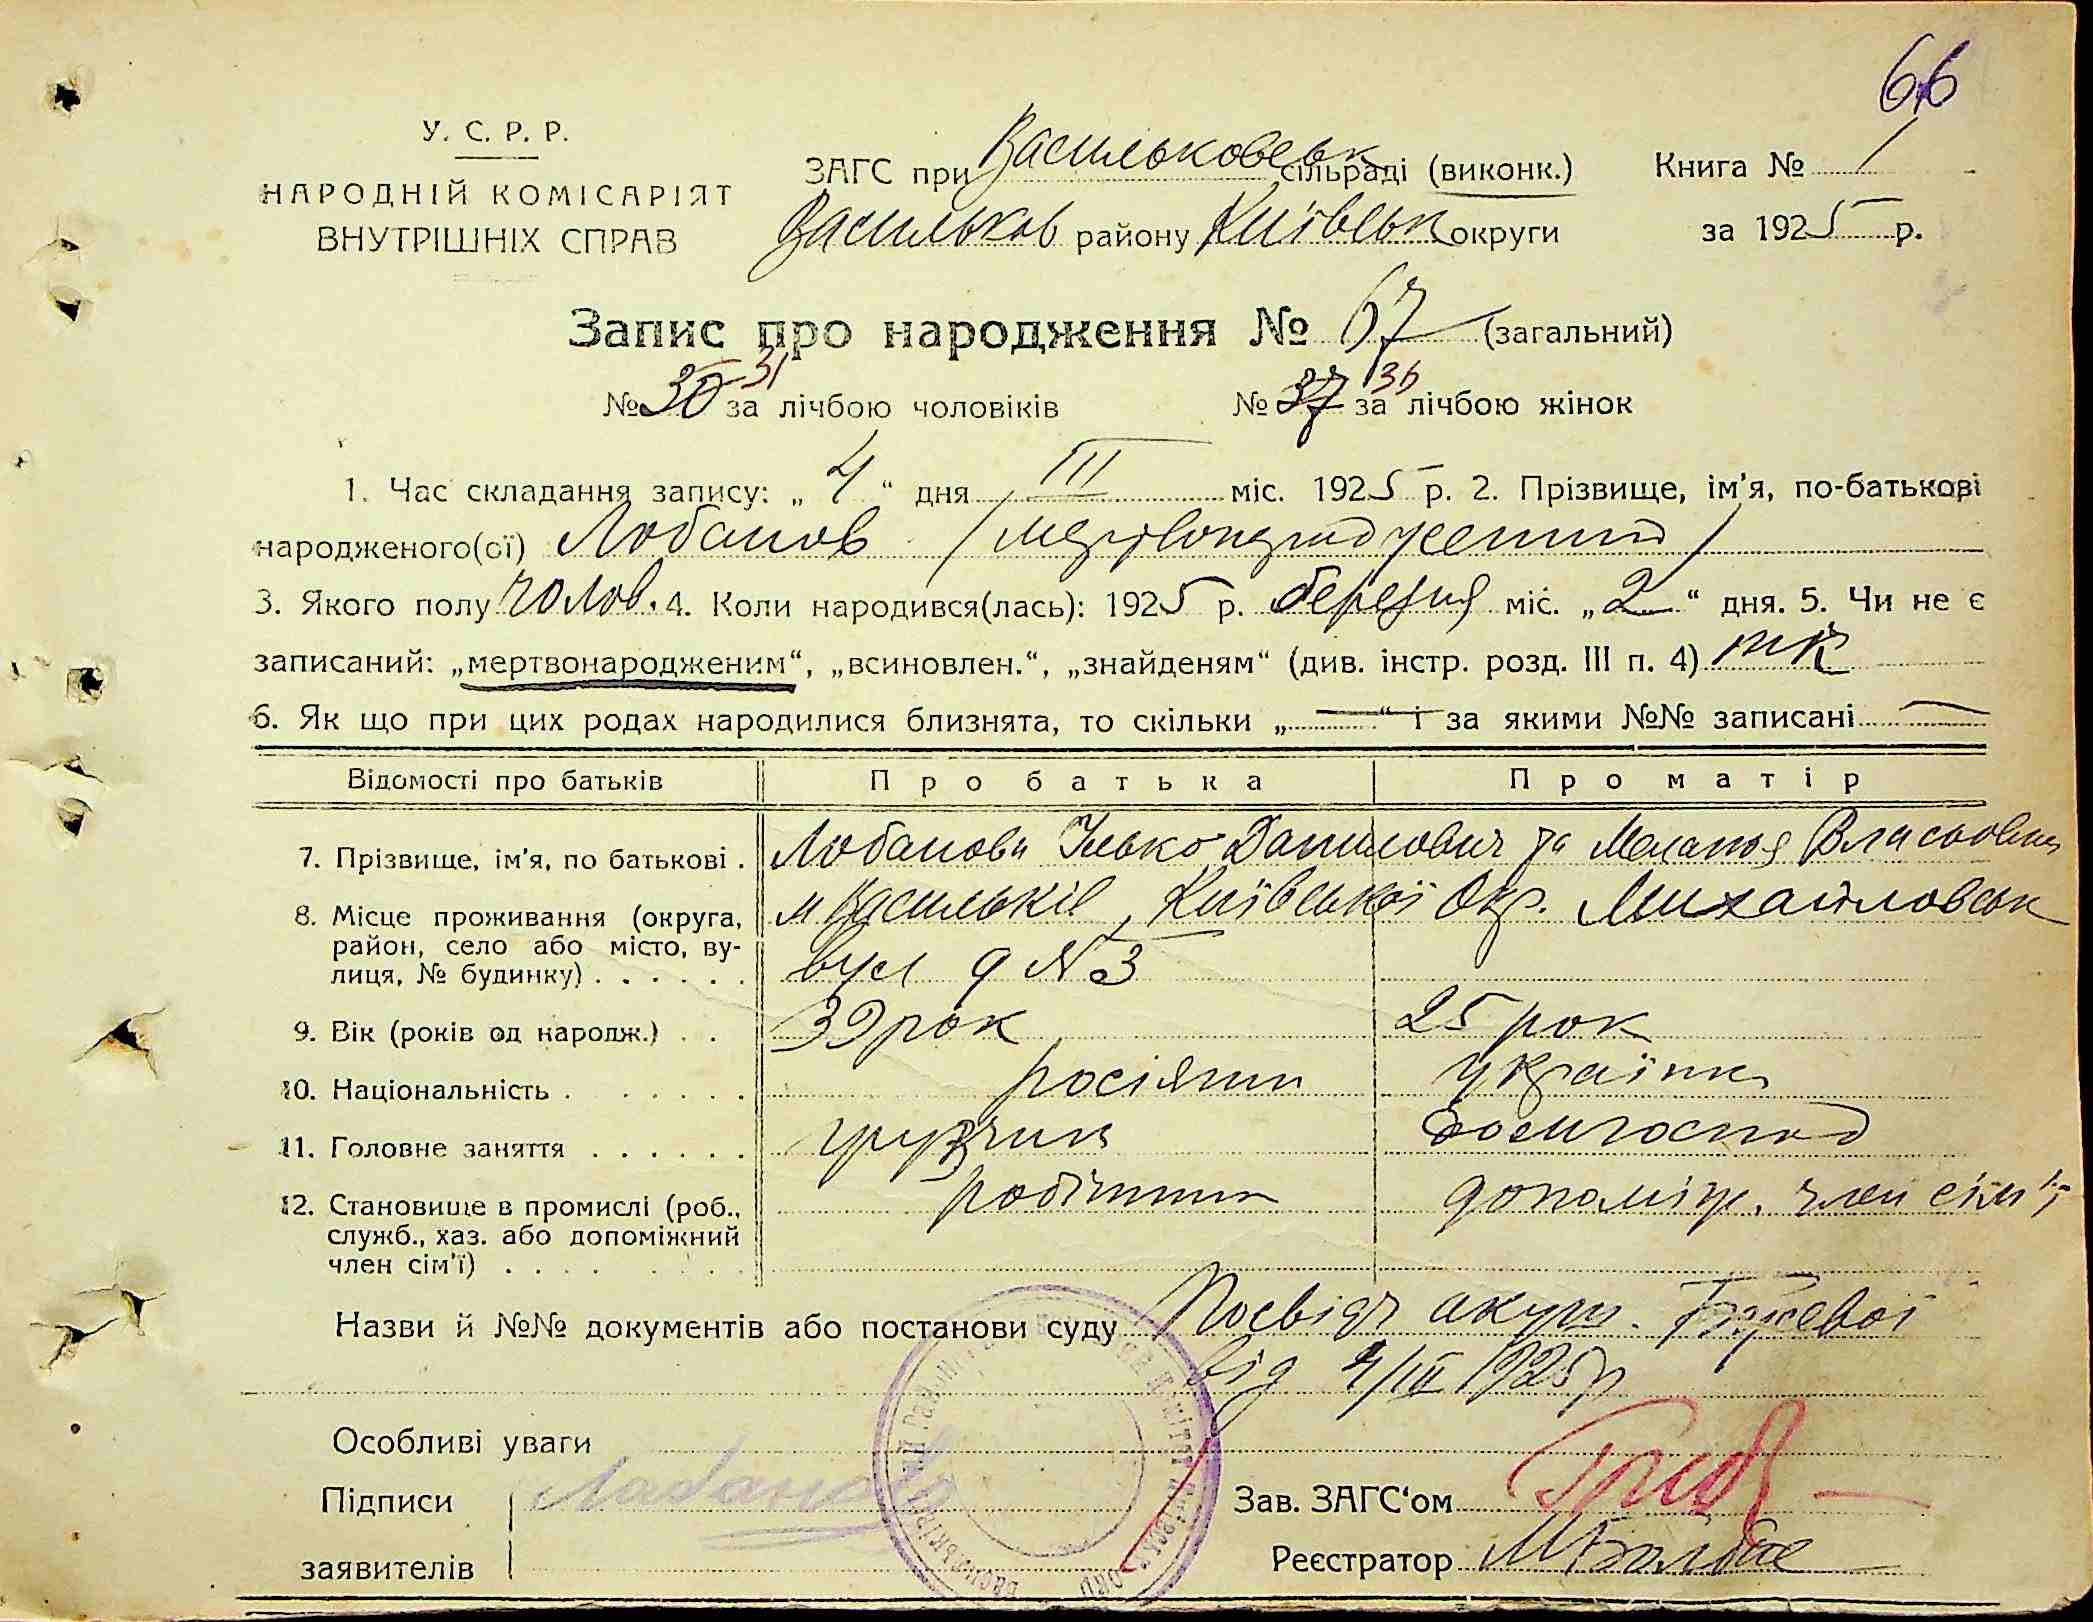 66
У. С. Р. Р.
НАРОДНІЙ КОМІСАРІЯТ
ВНУТРІШНІХ СПРАВ
ЗАГС при Васильковськ сільраді (виконк.)
Васильков району Київськ округи
Книга № 1
за 1925 р.
Запис про народження № 67 (загальний)
№ 30 31 за лічбою чоловіків № 37 36 за лічбою жінок
1. Час складання запису: „ 4 “ дня III міс. 1925 р. 2. Прізвище, ім'я, по-батькові
народженого(ої) Лобанов (мертвонароджений)
3. Якого полу чолов. 4. Коли народився(лась): 1925 р. березня міс. „2“ дня. 5. Чи не є
записаний: „мертвонародженим“, „всиновлен.“, „знайденям“ (див. інстр. розд. III п. 4) так
6. Як що при цих родах народилися близнята, то скільки „—“ і за якими №№ записані —
Відомості про батьків Про батька Про матір
7. Прізвище, ім'я, по батькові . Лобанови Ілько Данилович та Меланья Власовна
8. Місце проживання (округа, м Васильків, Київської Окр. Михайловськ
район, село або місто, ву-
лиця, № будинку) . . . . . . вул д №3
9. Вік (років од народж.) . . 39 рок 25 рок
10. Національність . . . . . . росіянин українка
11. Головне заняття . . . . . . грузчик домгоспод
12. Становище в промислі (роб., робітник допоміж. член сім'ї
служб., хаз. або допоміжний
член сім'ї) . . . .
Назви й №№ документів або постанови суду Посвідч акуш.
від 4/III 1925р
Особливі уваги
Підписи Лабанова
заявителів
Зав. ЗАГС‘ом
Реєстратор